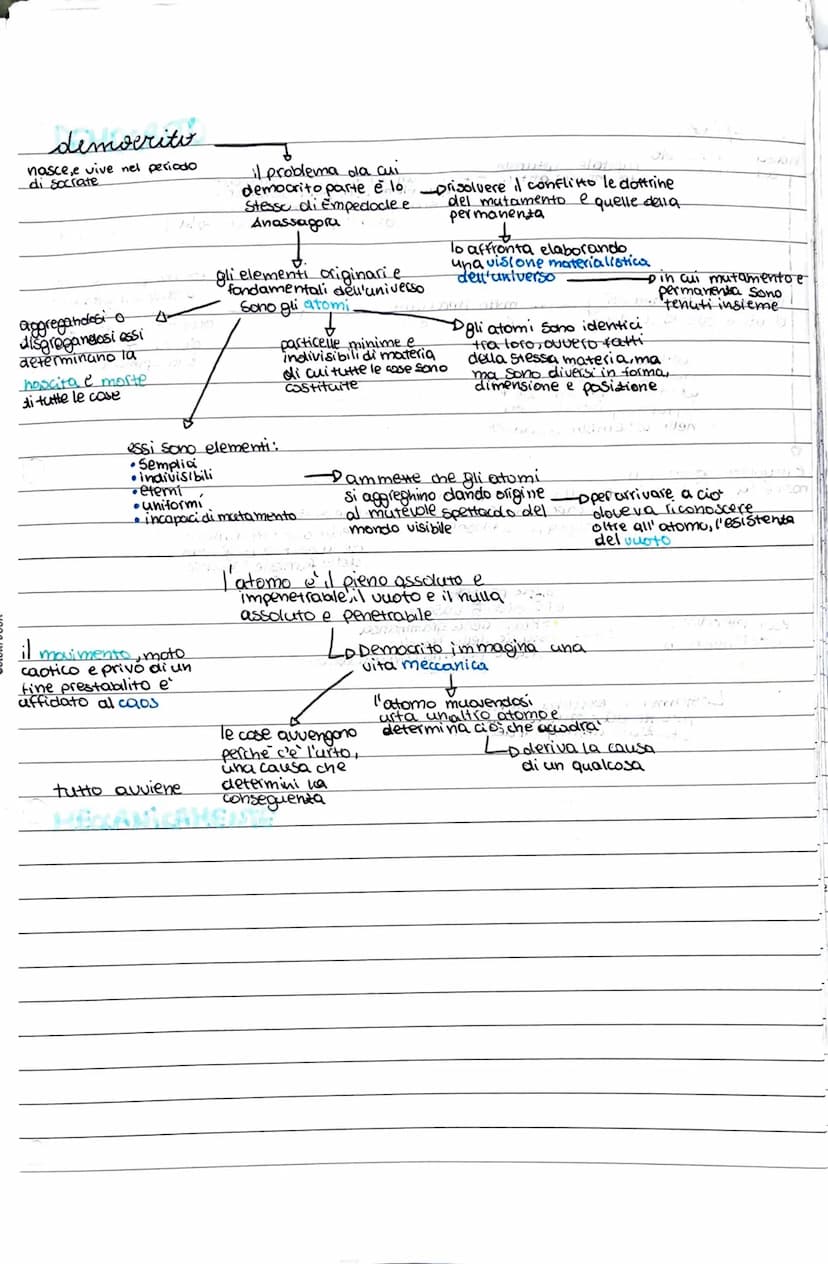 democrito
nasce,e vive nel periodo
di socrate
il problema da cui
democrito parte è lo
stesso di Empedocle e
Anassagora
risolvere il conflitto le dottrine
del mutamento e quelle della
permanenza
lo affronta elaborando
una visione materialistica
dell'universo
in cui mutamento e
permanenza sono
tenuti insieme
gli elementi originari e
fondamentali dell'universo
sono gli atomi
aggregandosi o
disgregandosi essi
determinano la
nascita e morte
di tutte le cose
particelle minime e
indivisibili di materia
di cui tutte le cose sono
costituite
gli atomi sono identici
tra loro, ovvero fatti
della stessa materia, ma
ma sono diversi in forma,
dimensione e posizione
essi sono elementi:
• semplici
• indivisibili
• eterni
• uniformi
• incapaci di mutamento
ammette che gli atomi
si aggreghino dando origine
al mutevole spettacolo del
mondo visibile
per arrivare a ciò
doveva riconoscere
oltre all'atomo, l'esistenza
del vuoto
l'atomo è il pieno assoluto e
impenetrabile, il vuoto e il nulla
assoluto e penetrabile
il movimento, moto
caotico e privo di un
fine prestabilito è
affidato al caos
Democrito immagina una
vita meccanica
l'atomo muovendosi
urta un altro atomo e
determina ciò che accadrà
deriva la causa
di un qualcosa
le cose avvengono
perché c'è l'urto,
una causa che
determini la
conseguenza
tutto avviene
MECCANICAMENTE